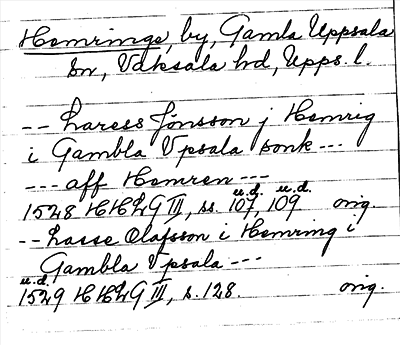 Hemringe, by, Gamla Uppsala
sn, Vaksala hd, Upps. l.
-- Laress Jönsson j Hemrig
i Gambla Vpsala sonk ---
--- aff Hemren ---
u.d. u.d.
1528 HH2G III, ss. 107, 109 orig.
-- Lasse Olafsson i Hemring i
Gambla Vpsala ---
u.d.
1529 HH2G III, s. 128. orig.